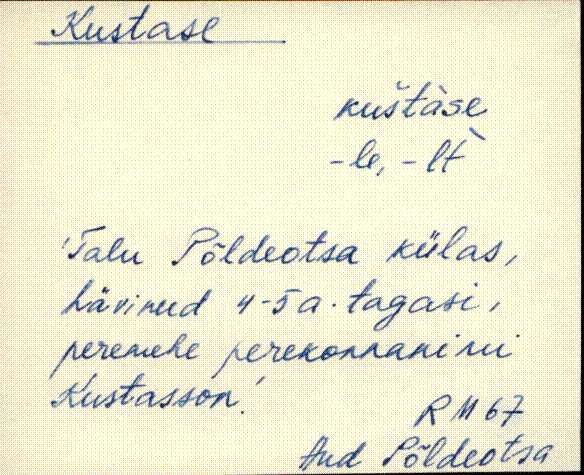 Kustase
kuštàse
-le, -lt̀
'Talu Põldeotsa külas,
hävinud 4-5 a. tagasi,
peremehe perekonnanimi
Kustasson.'
R M 67
Aud Põldeotsa